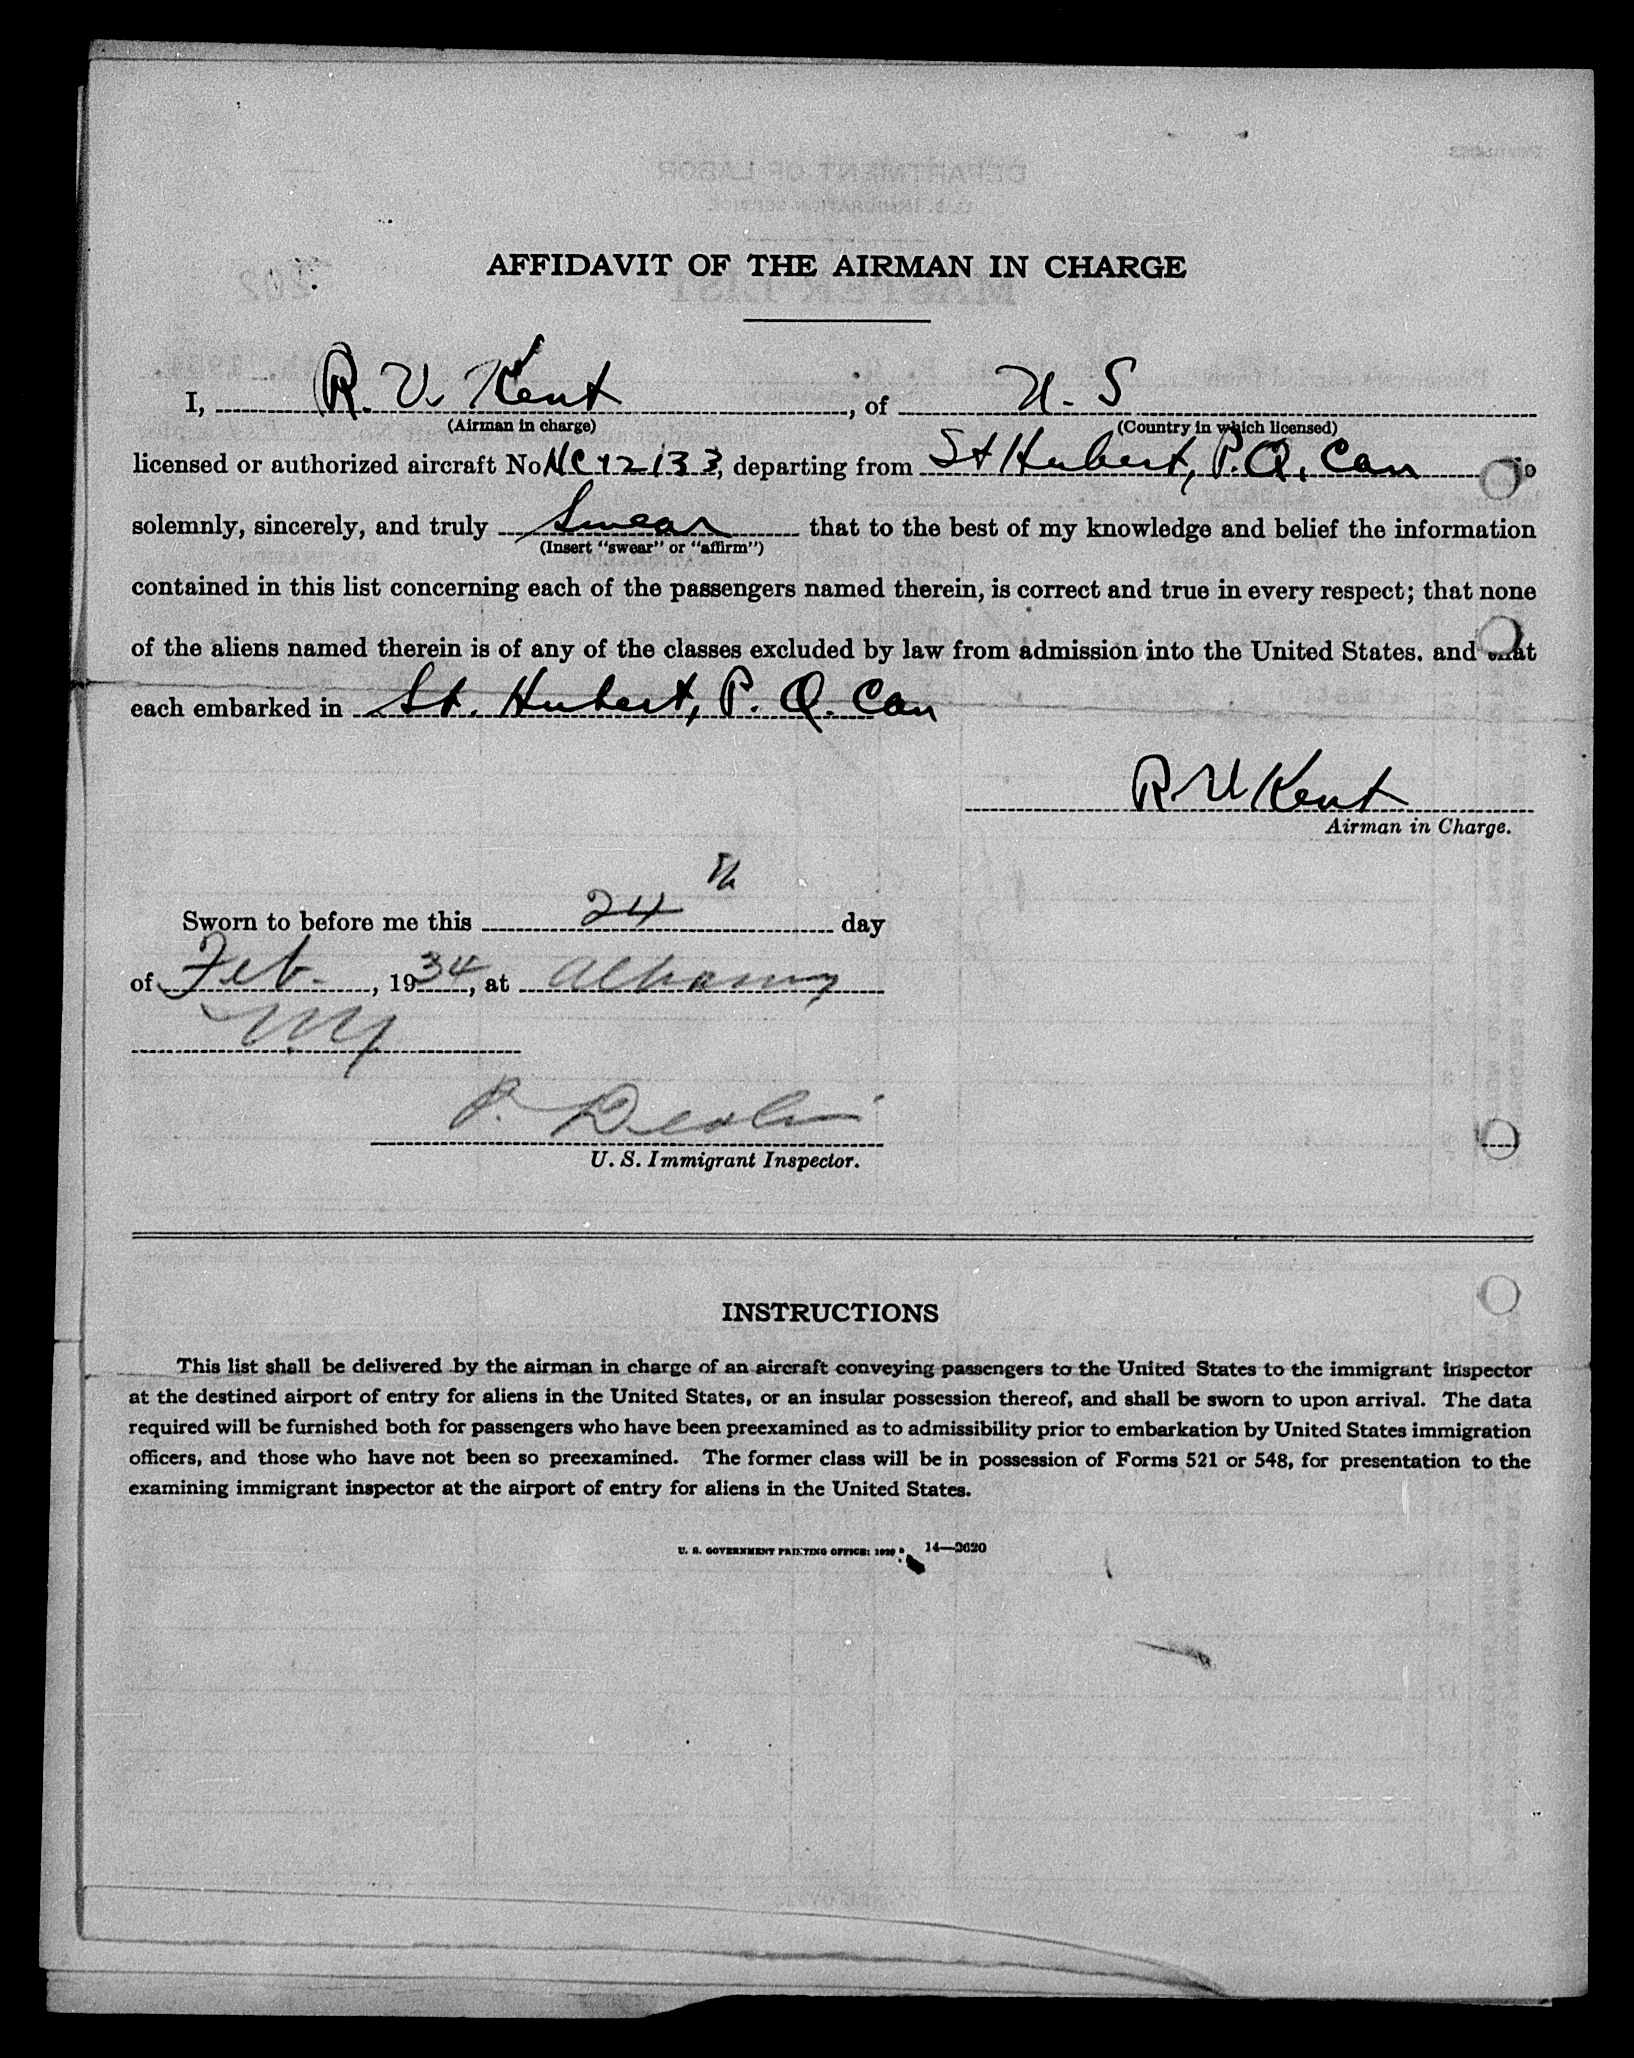 AFFIDAVIT OF THE AIRMAN IN CHARGE
I, R. V. Kent, of U. S
(Airman in charge) (Country in which licensed)
licensed or authorized aircraft No NC 12133, departing from St Hubert, P.Q. Can do
solemnly, sincerely, and truly Swear that to the best of my knowledge and belief the information
(Insert "swear" or "affirm")
contained in this list concerning each of the passengers named therein, is correct and true in every respect; that none
of the aliens named therein is of any of the classes excluded by law from admission into the United States, and that
each embarked in St. Hubert, P. Q. Can
R V Kent
Airman in Charge.
Sworn to before me this 24th day
of Feb., 1934, at Albany
NY
P.
U. S. Immigrant Inspector.
INSTRUCTIONS
This list shall be delivered by the airman in charge of an aircraft conveying passengers to the United States to the immigrant inspector
at the destined airport of entry for aliens in the United States, or an insular possession thereof, and shall be sworn to upon arrival. The data
required will be furnished both for passengers who have been preexamined as to admissibility prior to embarkation by United States immigration
officers, and those who have not been so preexamined. The former class will be in possession of Forms 521 or 548, for presentation to the
examining immigrant inspector at the airport of entry for aliens in the United States.
U. S. GOVERNMENT PRINTING OFFICE: 1929 14—3620